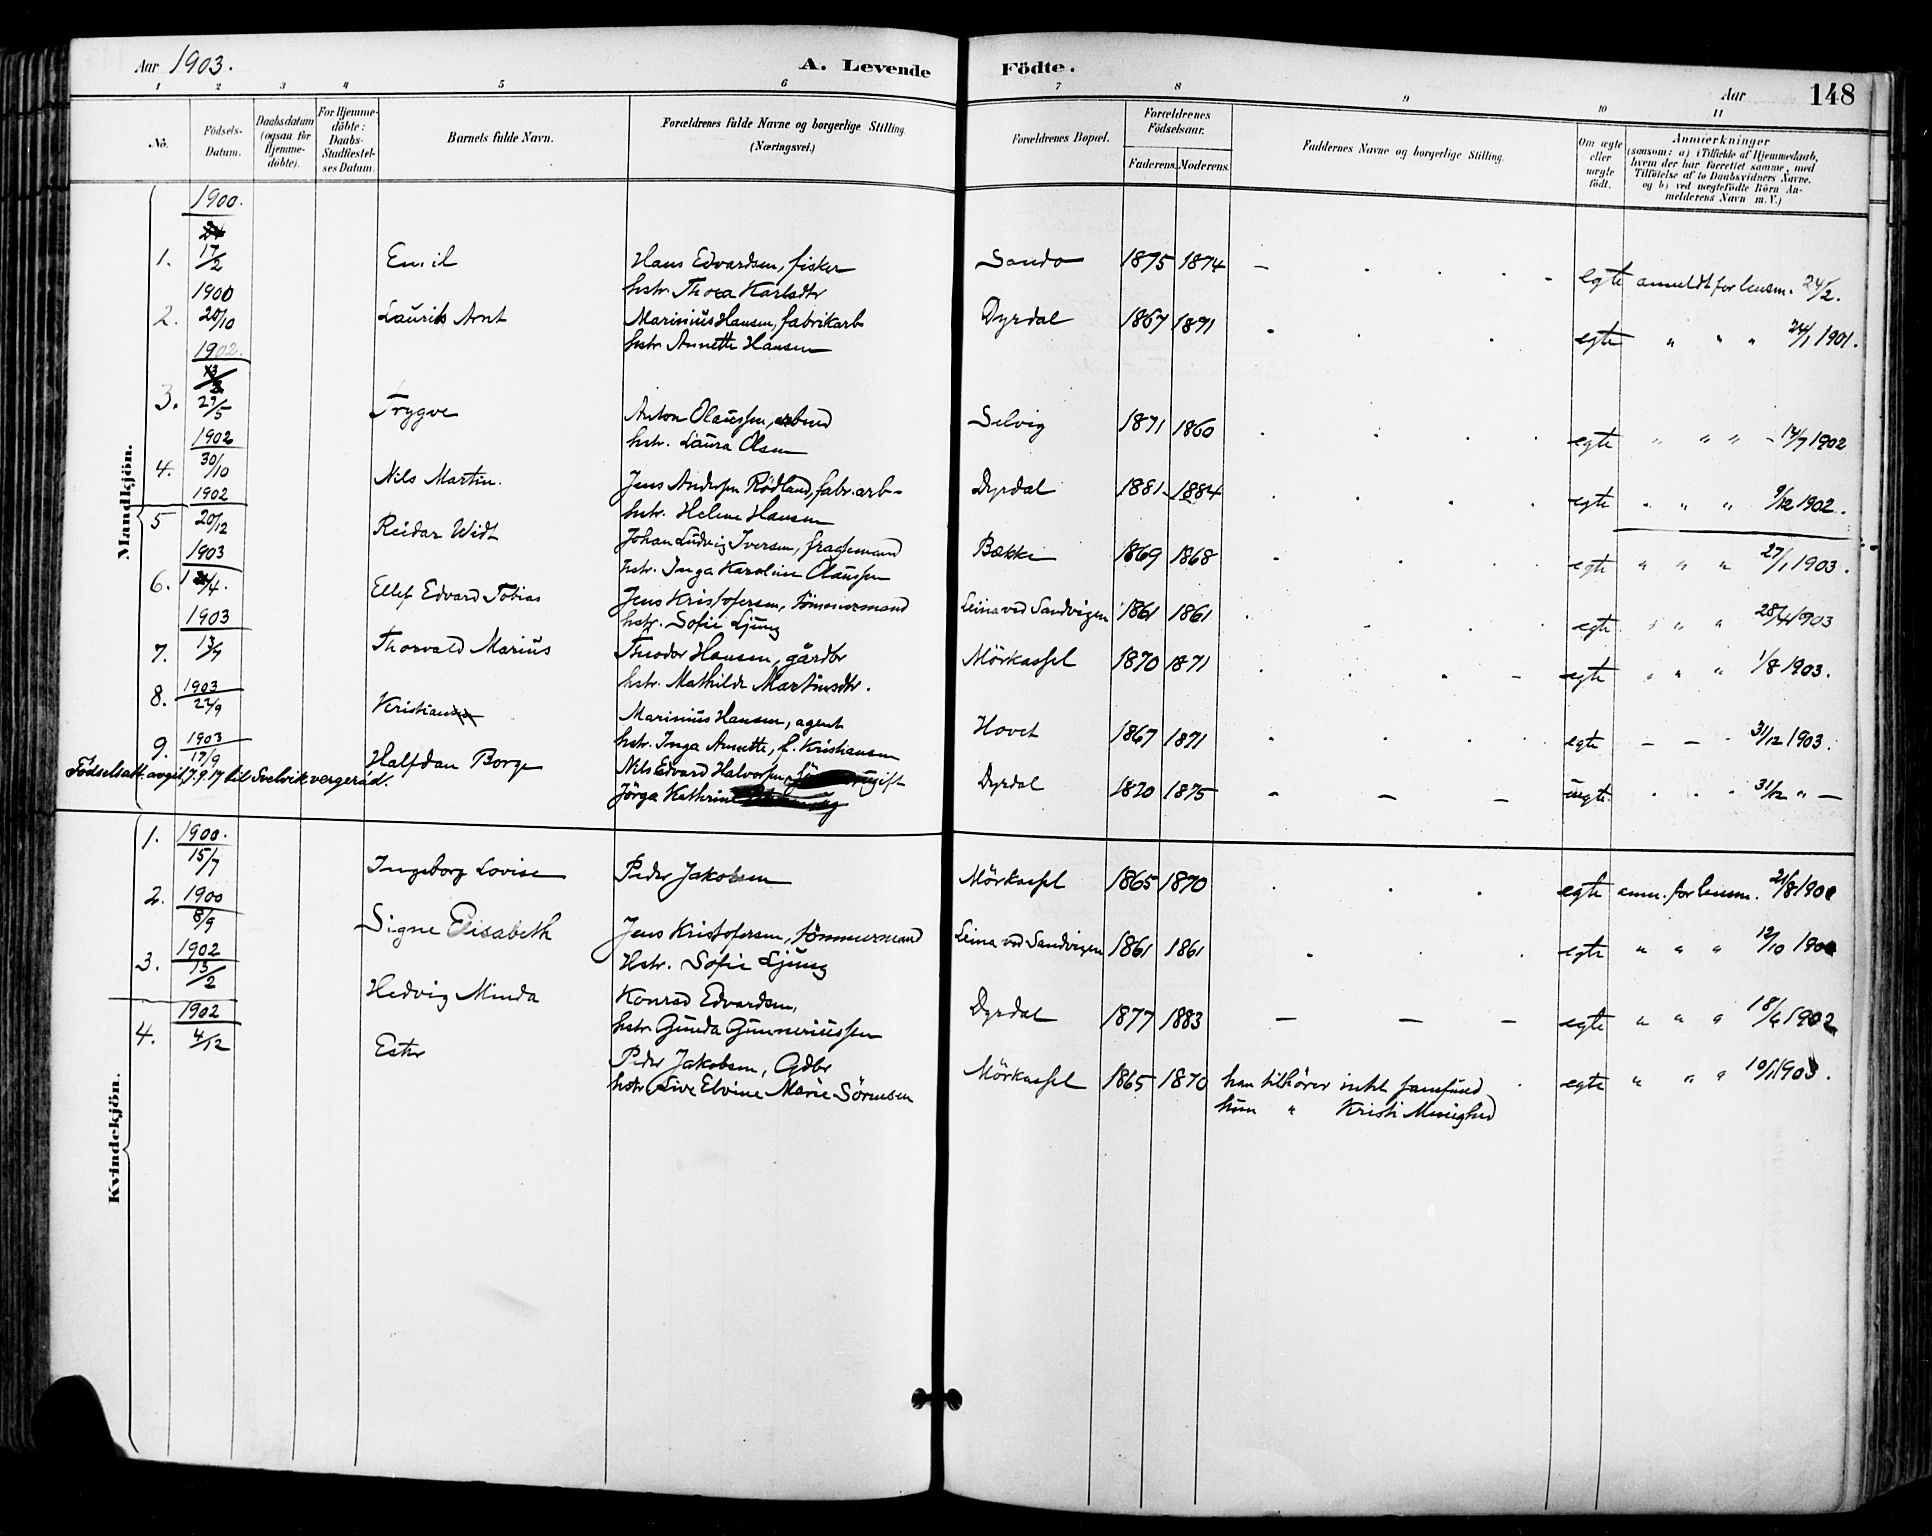 Aar 1903.
A. Levende Födte.
Aar
148
1 2 3 4 5 6 7 8 9 10 11
No.
Födsels-Datum.
Daabsdatum (ogsaa för Hjemme-döbte).
For Hjemme-döbte: Daabs-Stadfæstel-ses Datum.
Barnets fulde Navn.
Forældrenes fulde Navne og borgerlige Stilling. (Næringsvei.)
Forældrenes Bopæl.
Forældrenes Födselsaar.
Faderens. Moderens.
Faddernes Navne og borgerlige Stilling.
Om ægte eller uægte födt.
Anmærkninger
(saasom: a) i Tilfælde af Hjemmedaab, hvem der har forrettet samme, med Tilföielse af to Daabsvidners Navne. og b) ved uægtefödte Börn An-melderens Navn m. V.)
Mandkjön.
1900.
1. 17/2 Emil Hans Edvardsen, fisker Sando 1875 1874 – egte anmeldt for lensm. 24/2.
hstr. Thora Karlsdtr
1900
2. 20/10 Laurits Arnt Marinius Hansen, fabrikarb Dyrdal 1867 1871 egte " " " 24/1 1901.
hstr Annette Hansen
1902.
3. 27/5 Trygve Anton Olaussen, arbmd Selvig 1871 1860 egte " " " - 14/7 1902
hstr. Laura Olsen
1902
4. 30/10 Nils Martin. Jens Andersen Rödland, fabr. arb- Dyrdal 1881- 1884 egte " " " 9/12 1902.
hstr. Helene Hansen
1902
5 20/12 Reidar Widt Johan Ludvig Iversen, fragtemand Bække 1869 1868 egte " " " 27/1 1903.
hstr. Inga Karoline Olaussen
1903
6. /4. Ellef Edvard Tobias Jens Kristofersen, tömmermand Leina ved Sandvigen 1861 1861 egte " " " 28/4 1903
hstr. Sofie Ljung
1903
7. 13/7 Thorvald Marius Theodor Hansen, gårdbr Mörkassel 1870 1871 egte " " " 1/8 1903.
hstr. Mathilde Martinsdtr.
1903
8. 22/9 Kristian Marinius Hansen, agent Hovet 1867 1871 egte – – - 31/12 1903.
hstr. Inga Annette, f. Kristiansen
1903
9. 17/9 Halfdan Borge Nils Edvard Halvorsen ugift Dyrdal 1870 1875 – – – uegte " " " 31/12 " –
Jörga Kathrine
Födselsatt. avgit 17.9.17 til Svelvik vergeråd.
Kvindekjön.
1. 1900. 15/7 Ingeborg Lovise Peder Jakobsen Mörkassel 1865 1870 egte anm. for lensm. 21/8 1900
2. 1900 8/9 Signe Elisabeth Jens Kristofersen, tömmermand Leina ved Sandvigen 1861 1861 egte " " " 12/10 1900
Hstr. Sofie Ljung
3. 1902 13/2 Hedvig Minda Konrad Edvardsen, Dyrdal 1877 1883 – – – egte " " " 18/6 1902
hstr Gunda Gunneriussen
4. 1902 4/12 Ester Peder Jakobsen, Gdbr Mörkassel 1865 1870 han tilhörer intet samfund egte " " " 10/1 1903.
hstr Live Elvine Marie Sörensen hun " Kristi Menighed